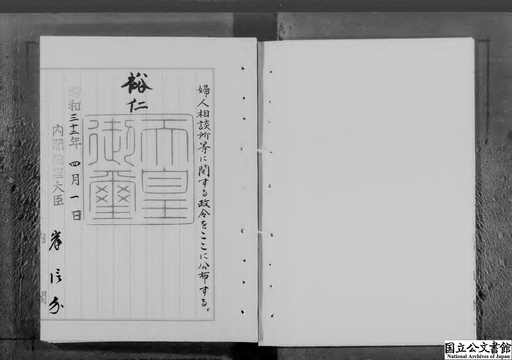 婦人相談所等に関する政令をここに公布する。
裕仁
天皇
御璽
昭和三十三年四月一日
内閣総理大臣
岸信介
国立公文書館
National Archives of Japan